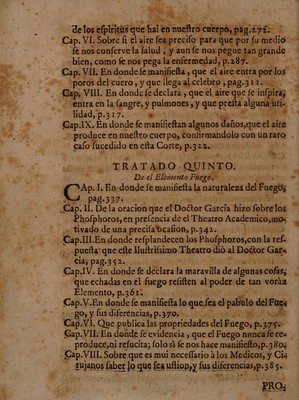 de los espiritus que hai en nuestro cuerpo, pag.275.
Cap. VI. Sobre si el aire sea preciso para que por su medio
se nos conserve la salud, y aun se nos pegue tan grande
bien, como se nos pega la enfermedad, p.287.
Cap. VII. En donde se manifiesta, que el aire entra por los
poros del cuero, y que llega al celebro, pag.311.
Cap. VIII. En donde se declara, que el aire que se inspira,
entra en la sangre, y pulmones, y que presta alguna uti-
lidad, p.317.
Cap.IX. En donde se manifiestan algunos daños,que el aire
produce en nuestro cuerpo, confirmandolo con un raro
caso sucedido en esta Corte, p.322.
TRATADO QUINTO.
De el Elemento Fuego.
CAp. I. En donde se manifiesta la naturaleza del Fuego,
pag.337.
Cap. II. De la oracion que el Doctor Garcia hizo sobre los
Phosphoros, en presencia de el Theatro Academico,mo-
tivado de una precisa ocasion, p.342.
Cap.III.En donde resplandecen los Phosphoros,con la res-
puesta que este Ilustrissimo Theatro diò al Doctor Gar-
cia, pag.352.
Cap.IV. En donde se declara la maravilla de algunas cosas,
que echadas en el fuego resisten al poder de tan voràz
Elemento, p.361.
Cap.V.En donde se manifiesta lo que sea el pabulo del Fue-
go, y sus diferencias, p.370.
Cap.VI. Que publica las propriedades del Fuego, p.375.
Cap.VII. En donde se evidencia, que el Fuego nunca se re-
produce,ni resucita; solo sì se nos hace manifiesto,p.380.
Cap.VIII. Sobre que es mui necessario à los Medicos, y Ci-
rujanos saber lo que sea ustion,y sus diferencias,p.385.
PRO-